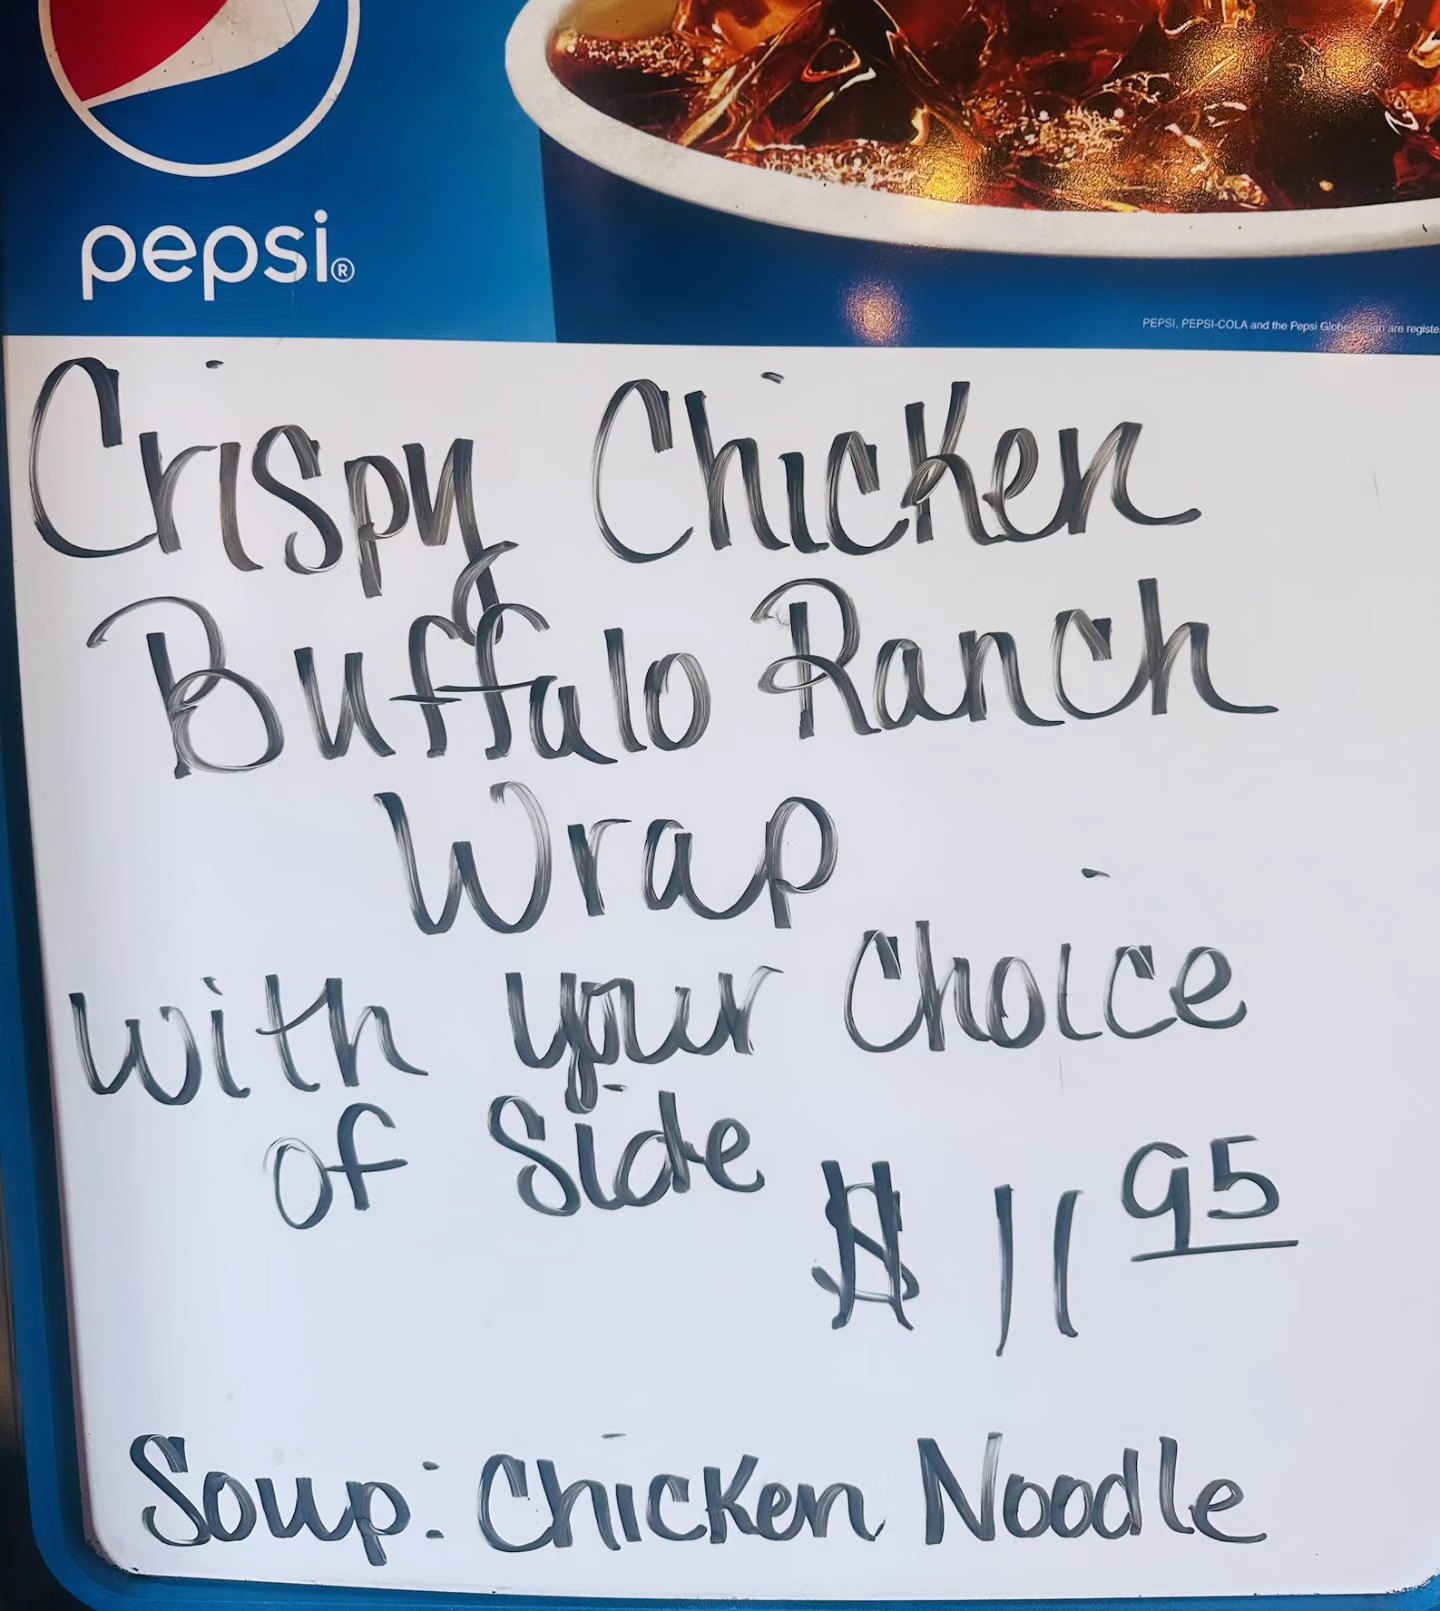 pepsi®
PEPSI, PEPSI-COLA and the Pepsi Globe design are registe
Crispy Chicken
Buffalo Ranch
Wrap
with your Choice
of Side
$11 95
Soup: Chicken Noodle